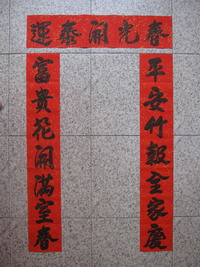 春光開泰運
平安竹報全家慶
富貴花開滿室春